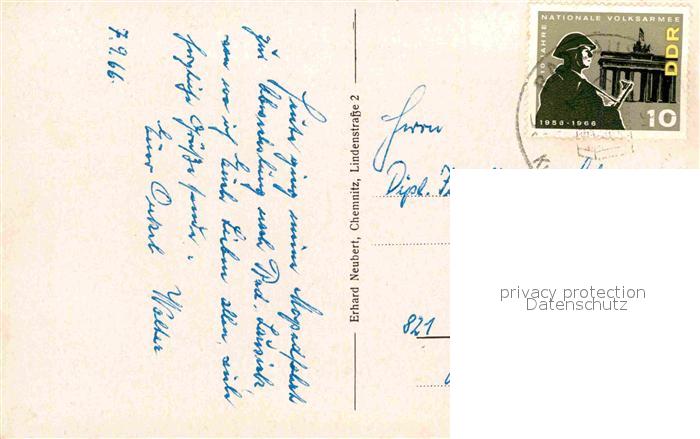 7.9.66.
Heute ging meine Mopedfahrt
zur Abwechslung nach Bad Lausick,
von wo ich Euch Lieben allen, viele
herzliche Grüße sende.
Euer Onkel Walter
Erhard Neubert, Chemnitz, Lindenstraße 2
10 JAHRE NATIONALE VOLKSARMEE
DDR
1956-1966
10
Herrn
Dipl.
821
privacy protection
Datenschutz